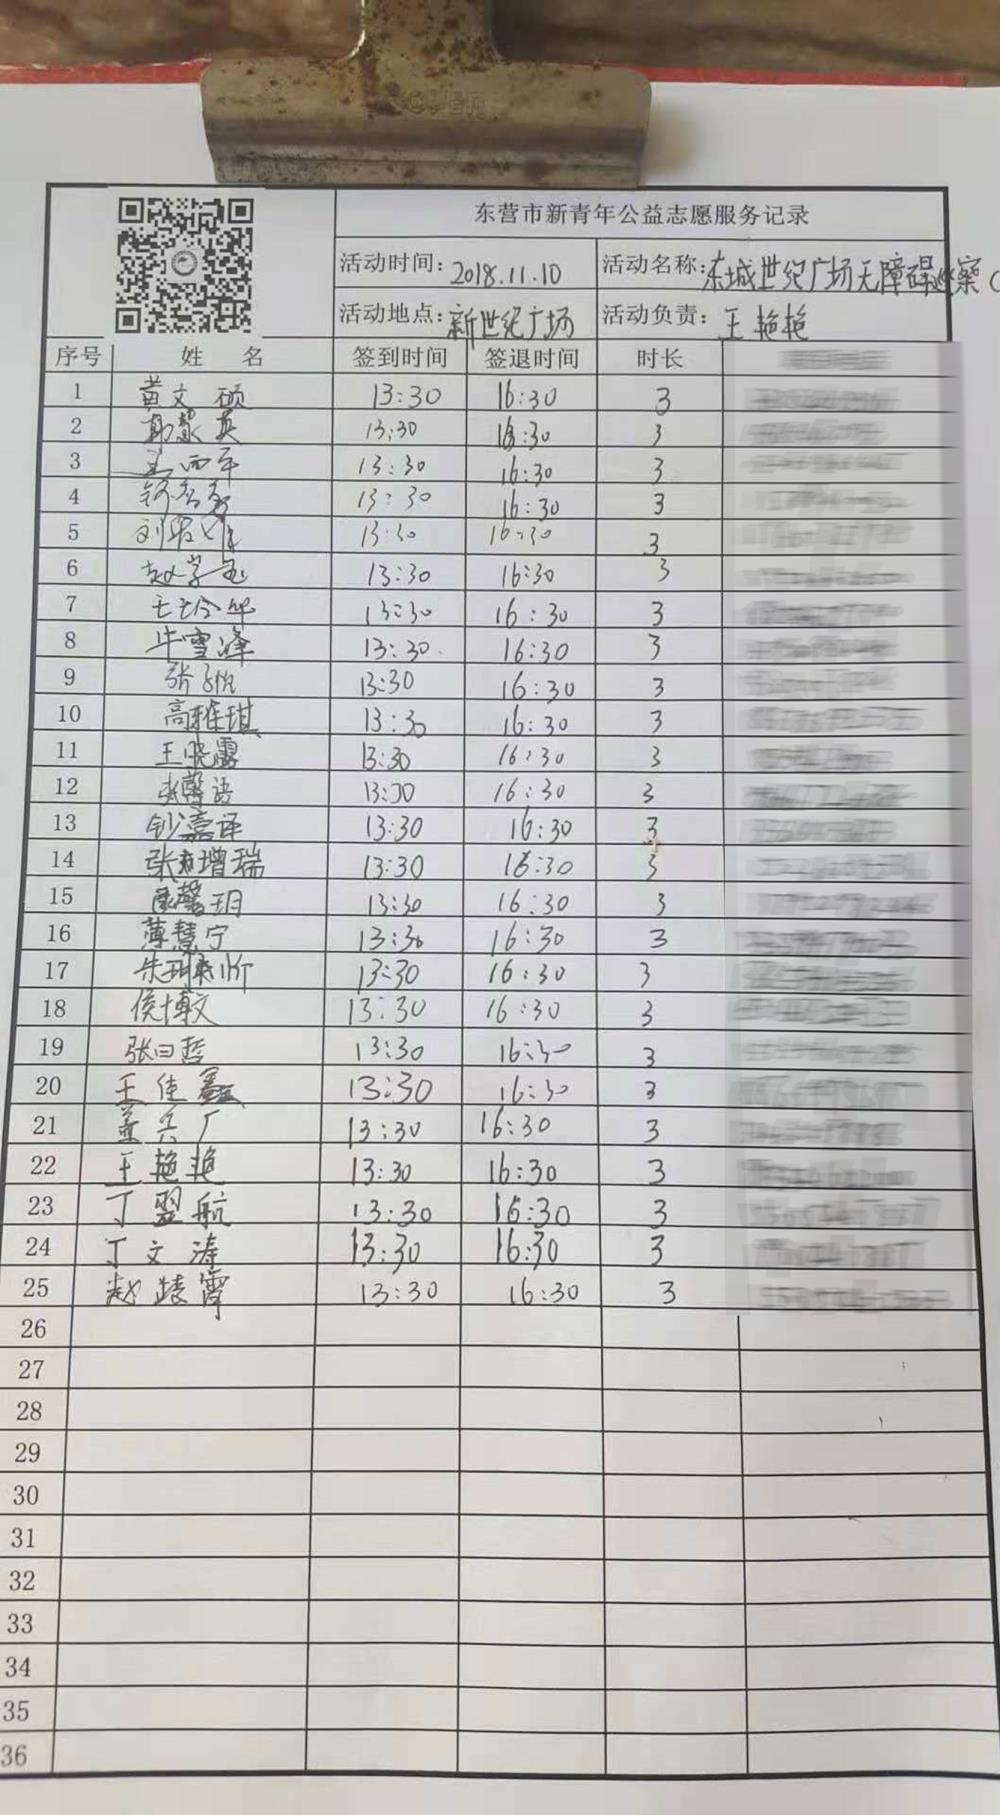 东营市新青年公益志愿服务记录
活动时间: 2018.11.10 活动名称: 东城世纪广场无障碍巡察(
活动地点: 新世纪广场 活动负责: 王艳艳
序号 姓 名 签到时间 签退时间 时长
1 黄文硕 13:30 16:30 3
2 郭慧英 13:30 16:30 3
3 13:30 16:30 3
4 13:30 16:30 3
5 13:30 16:30 3
6 赵学 13:30 16:30 3
7 13:30 16:30 3
8 牛雪峰 13:30 16:30 3
9 张 13:30 16:30 3
10 高雅琪 13:30 16:30 3
11 王晓露 13:30 16:30 3
12 张馨语 13:30 16:30 3
13 钞嘉译 13:30 16:30 3
14 张增瑞 13:30 16:30 3
15 馨玥 13:30 16:30 3
16 薄慧宁 13:30 16:30 3
17 朱 13:30 16:30 3
18 侯博文 13:30 16:30 3
19 张曰哲 13:30 16:30 3
20 王佳鑫 13:30 16:30 3
21 董兵厂 13:30 16:30 3
22 王艳艳 13:30 16:30 3
23 丁翌航 13:30 16:30 3
24 丁文涛 13:30 16:30 3
25 赵 霄 13:30 16:30 3
26
27
28
29
30
31
32
33
34
35
36